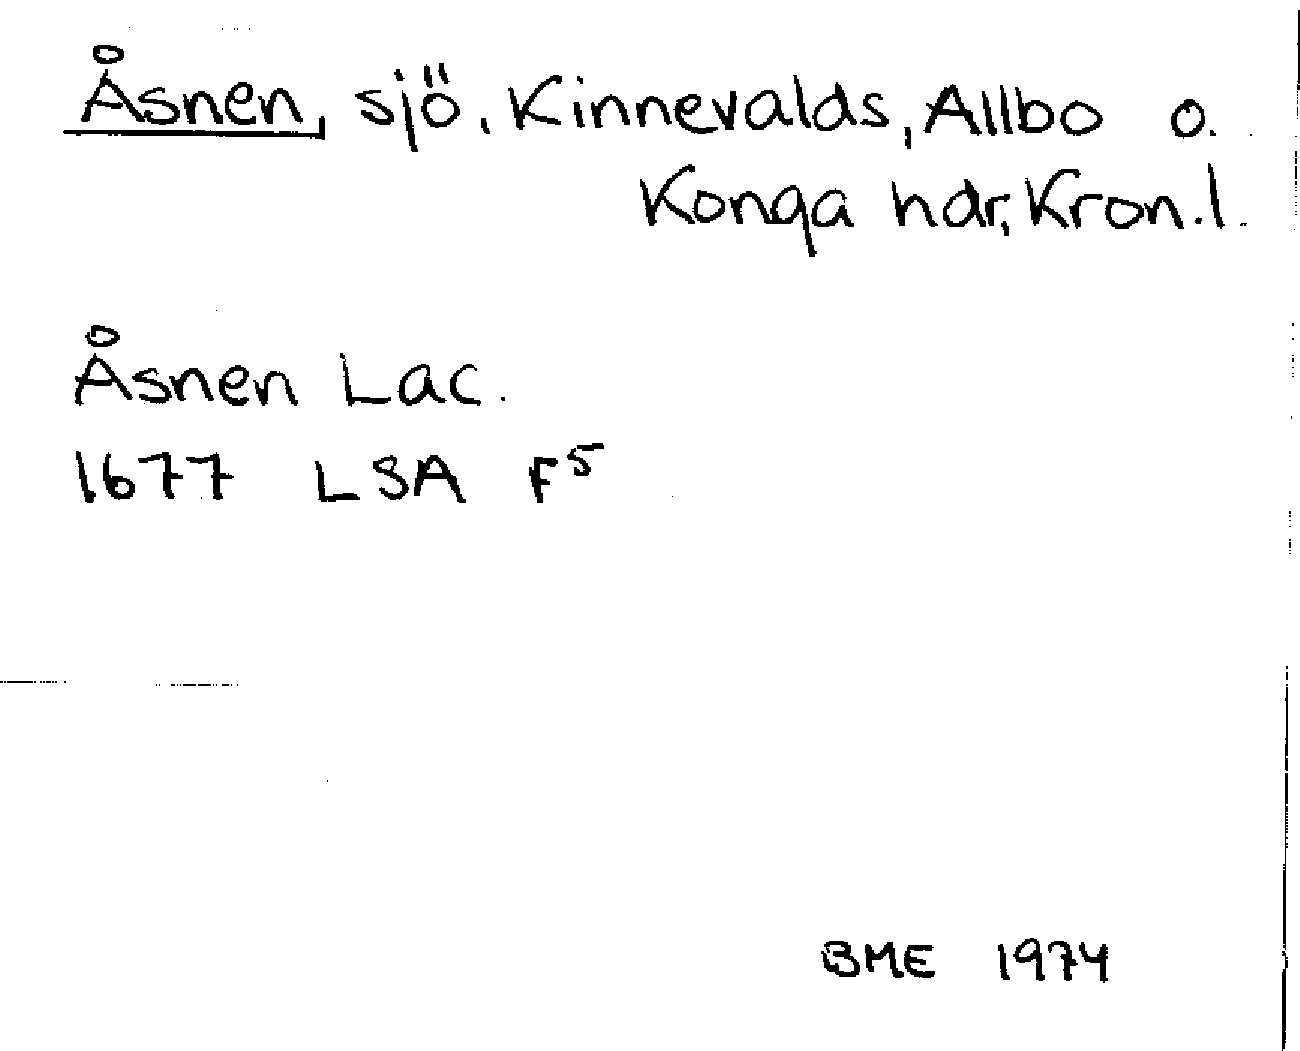 Åsnen, sjö, Kinnevalds, Allbo o.
Konga hdr, Kron.l.
Åsnen Lac.
1677 LSA F⁵
BME 1974